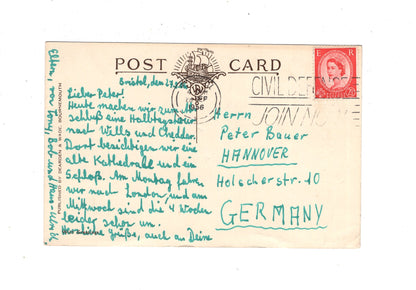 POST CARD
Bristol, den
Lieber Peter!
Heute machen wir zum Ab-
schluß eine Halbtagstour
nach Wills und Chedder.
Dort besichtigen wir eine
alte Kathedrale und ein
Schloß. Am Montag fahren
wir nach London, und am
Mittwoch sind die 4 Wochen
leider schon um.
Herzliche Grüße, auch an Deine
Eltern, von Tony, Bob und Hans-Ulrich
PUBLISHED BY DEARDEN & WADE, BOURNEMOUTH
E R
CIVIL DEFENCE
JOIN NOW
SEP
1956
Herrn
Peter Bauer
HANNOVER
Holscherstr. 10
GERMANY